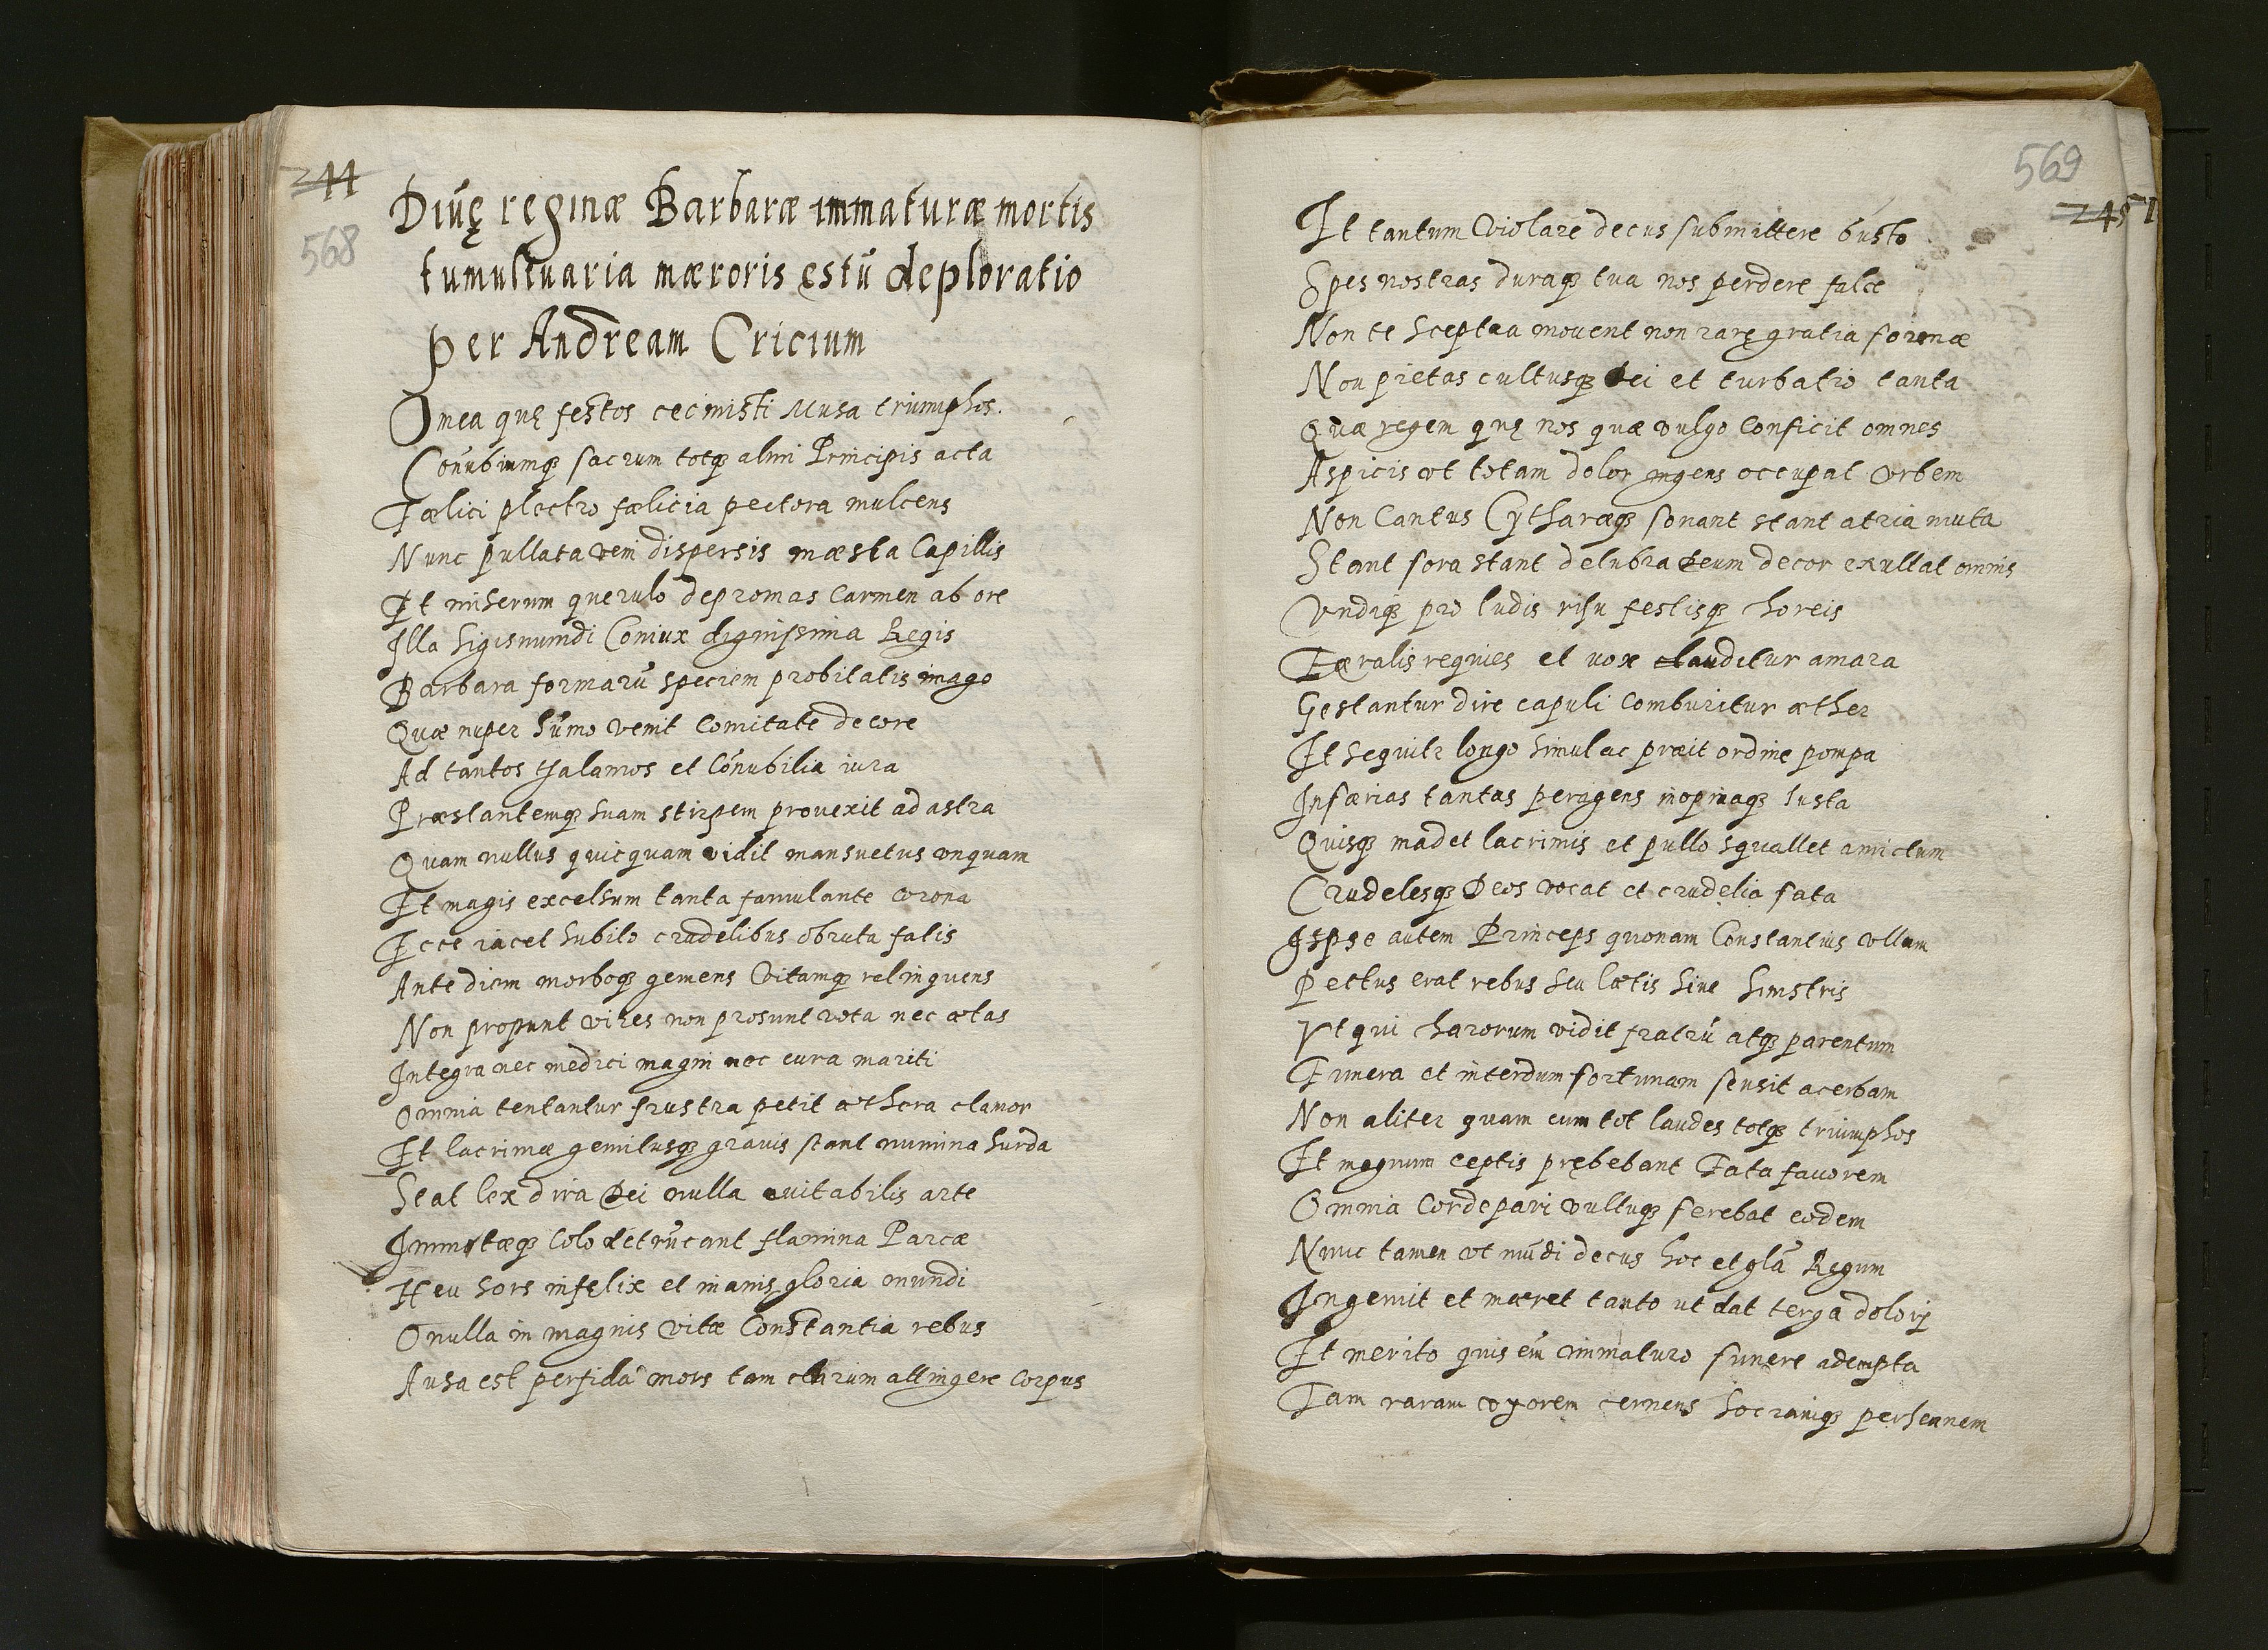 244
568
Diuę reginæ Barbaræ immaturæ mortis
tumultuaria mæroris ęstū deploratio
per Andream Cricium
O mea quę festos cecinisti Musa triumphos.
Conubiumqȝ sacrum totqȝ almi Principis acta
Fælici plectro fælicia pectora mulcens
Nunc pullata veni dispersis mæsta Capillis
Et miserum querulo depromas Carmen ab ore
Illa Sigismundi Coniux dignissima Regis
Barbara formarū speciem probitatis imago
Quæ nuper sūmo venit Comitate decore
Ad tantos thalamos et Cōnubilia iura
Præstantemqȝ suam stirpem prouexit ad astra
Quam nullus quicquam vidit mansuetus vnquam
Et magis excelsum tanta famulante corona
Ecce iacet subito crudelibus obruta fatis
Ante diem morboqȝ gemens Vitamqȝ relinquens
Non prosunt vires non prosunt vota nec ætas
Integra nec medici magni nec cura mariti
Omnia tentantur frustra petit æthera clamor
Et lacrimæ gemitusqȝ grauis stant numina surda
Seat lex dira Dei nulla euitabilis arte
Immotæqȝ Colo detrūcant flamina Parcæ
Heu sors infęlix et inanis gloria mundi
O nulla in magnis vitæ Constantia rebus
Ausa est perfida mors tam clarum attingere Corpus
569
245
Et tantum Violare decus submittere busto
Spes nostras duraqȝ tua nos perdere falce
Non te Sceptra mouent non rarę gratia formæ
Non pietas cultusqȝ Dei et turbatio tanta
Quæ regem quę nos quæ vulgo Conficit omnes
Aspicis vt totam dolor ingens occupat Vrbem
Non Cantus Cytharæqȝ sonant stant atria muta
Stant fora stant delubra Deum decor exullat omnis
Vndiqȝ pro ludis risu festisqȝ horeis
Færalis requies et uox clauditur amara
Gestantur dire capuli Comburitur æther
Et sequitr longo simul ac præit ordine pompa
Infærias tantas peragens inopinaqȝ Iusta
Quisqȝ madet lacrimis et pullo squallet amictum
Crudelesqȝ Deos vocat et crudelia fata
Ispse autem Princeps quonam Constantius vllum
Pectus erat rebus seu lætis siue sinistris
Vt qui harorum vidit fratrū atqȝ parentum
Funera et interdum fortunam sensit acerbam
Non aliter quam cum tot laudes totqȝ triumphos
Et magnum ceptis prębebant Fata fauorem
Omnia Corde pari vultuqȝ ferebat eodem
Nunc tamen vt mūdi decus hoc et glā Regum
Ingemit et mæret tanto ut dat terga dolori
Et merito quis eīn immaturo funere adempta
Tam raram vxorem cernens socramqȝ